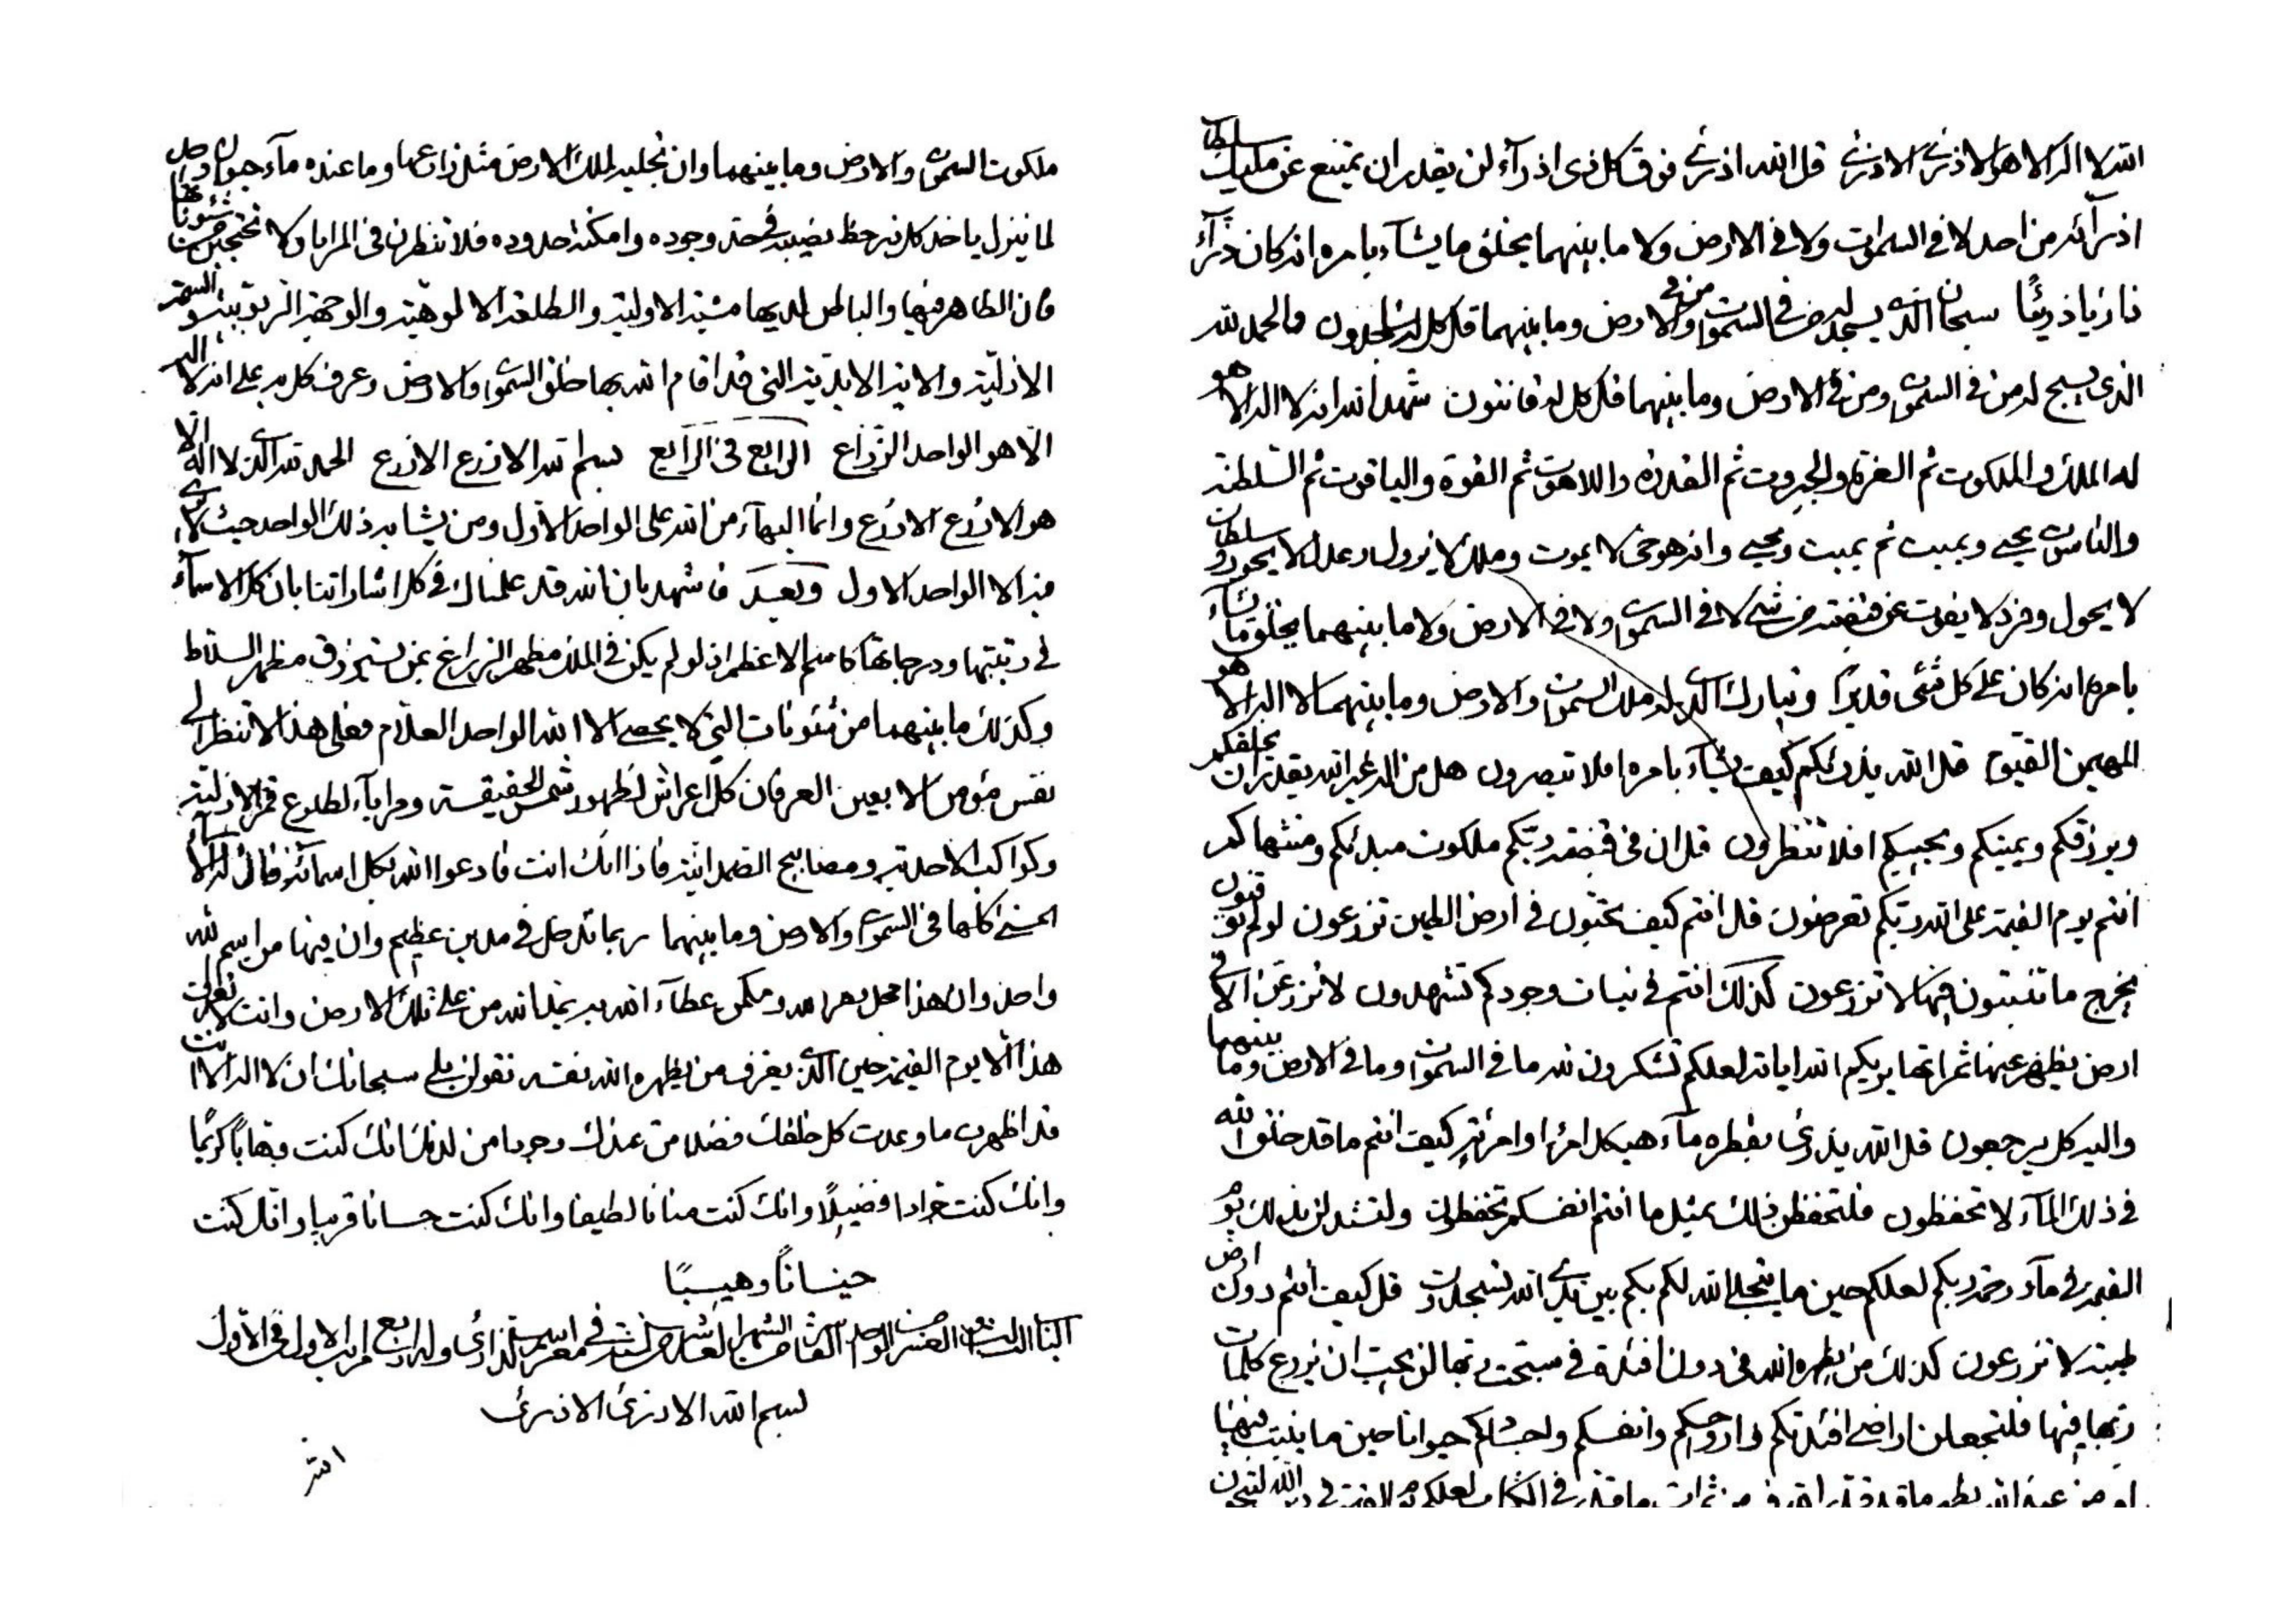 الله لا اله الا هو الاذرئ الاذرئ قل الله اذرئ فوق كل ذي اذرآء لن يقدر ان يمتنع عن مليك سلطان
اذرآئه من احد لا في السموات ولا في الارض ولا ما بينهما يخلق ما يشآء بامره انه كان ذرّآء
ذارئا ذريئا سبحان الذي يسجد له من في السموات ومن في الارض وما بينهما قل كل له ساجدون والحمد لله
الذي يسبح له من في السموات ومن في الارض وما بينهما قل كل له قانتون شهد الله انه لا اله الا هو
له الملك والملكوت ثم العزة والجبروت ثم القدرة واللاهوت ثم القوة والياقوت ثم السلطنة
والناسوت يحيي ويميت ثم يميت ويحيي وانه هو حي لا يموت وملك لا يزول وعدل لا يجور وسلطان
لا يحول وفرد لا يفوت عن قبضته من شيء لا في السموات ولا في الارض ولا ما بينهما يخلق ما يشآء
بامره انه كان على كل شئ قديرا وتبارك الذي له ملك السموات والارض وما بينهما لا اله الا هو
المهيمن القيوم قل الله يذرئكم كيف يشآء بامره افلا تبصرون هل من اله غير الله يقدر ان يخلقكم
ويرزقكم ويميتكم ويحييكم افلا تنظرون قل ان في قبضة ربكم ملكوت مبدئكم ومنتهاكم
انتم يوم القيمة على الله ربكم تعرضون قل انتم كيف تحبّون في ارض الطين تزرعون لو لم توقنون
يخرج ما تنبتون فيها لا تزرعون كذلك انتم في نبات وجودكم تشهدون لا تزرعنّ الا في
ارض يظهر عنها ثمراتها يريكم الله اياته لعلكم تشكرون لله ما في السموات وما في الارض وما بينهما
واليه كل يرجعون قل الله يذرئ بقطرة مآء هيكل امرء او امرئة كيف انتم ما قد خلق الله
في ذلك المآء لا تحفظون فلتحفظن ذلك بمثل ما انتم انفسكم تحفظون
القيمة في مآء رحمة ربكم لعلكم حين ما يتجلى الله لكم بكم بين يدي الله لتسجدون قل كيف انتم دون ارض
طيبة لا تزرعون كذلك من يظهره الله في دون افئدة مسبحة ربها لن يحب ان يزرع كلمات
ربها فيها فلتجعلن اراضي افئدتكم وارواحكم وانفسكم واجسادكم حيوانا حين ما ينبت فيها
ملكوت السموات والارض وما بينهما وان تجليه لملك الارض مثل زارعها وما عنده مآء حيوان وكل
لما ينزل ياخذ كل نبر حظ نصيبه في حد وجوده وامكنة حدوده فلا تنظرن في المرايا ولا تحتجبن من شئوناتها
فان الظاهر فيها والباطن لديها مشية الاولية والطلعة الالوهية والوجهة الربوبية
الازلية والانية الابدية التي قد اقام الله بها خلق السموات والارض وعرف كل بر على انه لا اله
الا هو الواحد الزراع الرابع في الرابع بسم الله الازرع الازرع الحمد لله الذي لا اله الا
هو الازرع الازرع وانما البهآء من الله على الواحد الاول ومن يشابه ذلك الواحد حيث لا يرى
فيه الا الواحد الاول وبعد فاشهد بان الله قد علمناك في كل اشاراتنا بان كل الاسمآء
في رتبتها ودرجاتها كاسم الاعظم اذ لو لم يكن في الملك مظهر الزراع عمن يسترزق مظهر السلاط
وكذلك ما بينهما من شئونات التي لا يحصي الا الله الواحد العلام فعلى هذا لا تنظر الى
نفس مؤمن الا بعين العرفان كل اعراش لظهور شمس الحقيقة ومرايآء لطلوع قمر الازلية
وكواكب الاحدية ومصابيح الصمدانية فاذا انك انت فادعوا الله بكل اسمائه فان له الاسمآء
الحسنى كلها في السموات والارض وما بينهما ربما تدخل في مدين عظيم وان فيها من اسم الله
واحد وان هذا محل وممكن عطآء الله به يمن الله من على تلك الارض وانت لا تعرف
هذا الا يوم القيمة حين الذي يعرف من يظهره الله نفسه تقولن بلى سبحانك ان لا اله الا انت
قد اظهرت ما وعدت كل خلقك فضلا من عندك وجودا من لدنك انك كنت وهابا كريما
وانك كنت جوادا فضيلا وانك كنت منانا لطيفا وانك كنت حسانا قريبا وانك كنت
حينسانا وهيبا
في معرفة اسم الذارئ وله اربع مراتب الاول في الاول
بسم الله الاذرئ الاذرئ
الله